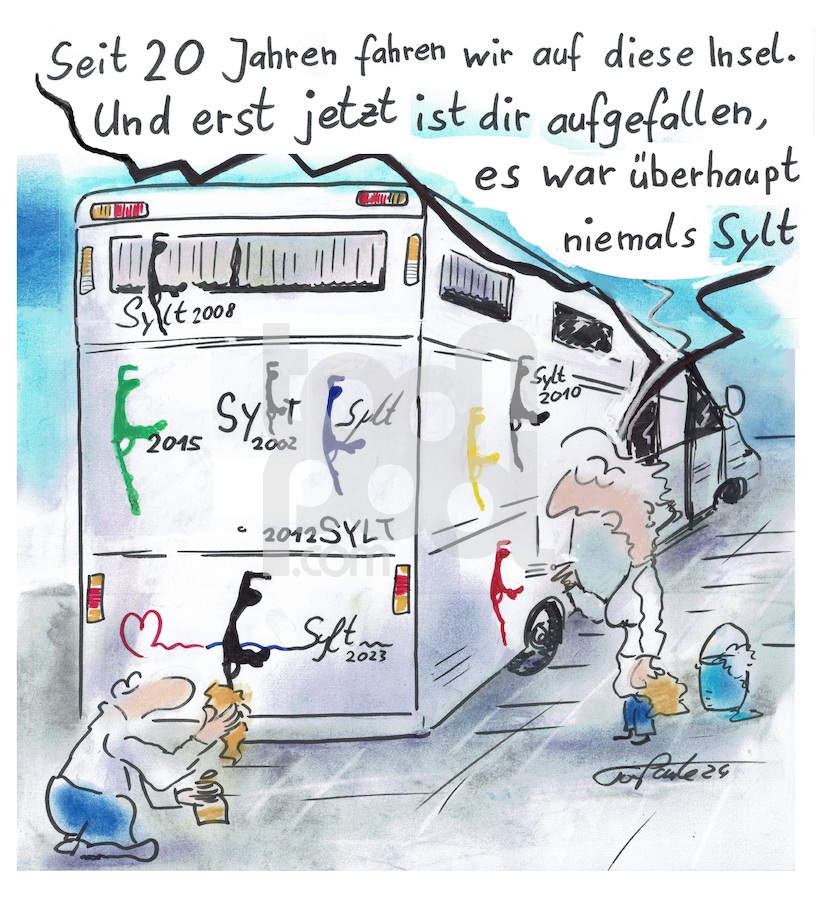 Seit 20 Jahren fahren wir auf diese Insel.
Und erst jetzt ist dir aufgefallen,
es war überhaupt
niemals Sylt
Sylt 2008
2015
SYLT
2002
Sylt
Sylt
2010
2012 SYLT
Sylt
2023
toonpool
.com